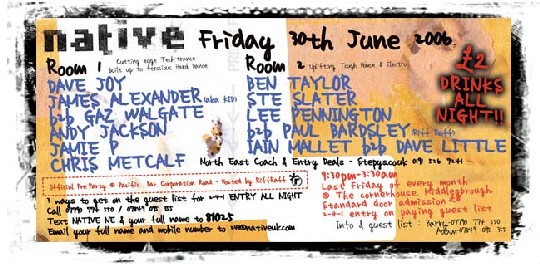 native Friday 30th June 2006
Room 1 Cutting edge Tech trance built up to ferocious Hard Dance
DAVE JOY
JAMES ALEXANDER (aka KID)
b2b GAZ WALGATE
ANDY JACKSON
JAMIE P
CHRIS METCALF
Room 2 Uplifting Tough House & Electro
BEN TAYLOR
STE SLATER
LEE PENNINGTON
b2b PAUL BARDSLEY (Riff Raff)
IAIN MALLET b2b DAVE LITTLE
£2
DRINKS
ALL
NIGHT!!
North East Coach & Entry Deals -
Official Pre Party @ Pacific Bar Corporation Road - Hosted by RiffRaff
ways to get on the guest list for ENTRY ALL NIGHT
Text NATIVE NE & your full name to
Email your full name and mobile number to
9:30pm-3:30am
Last Friday of every month
@ The Cornerhouse Middlesbrough
Standard door admission
entry on paying guest list
info & guest list :